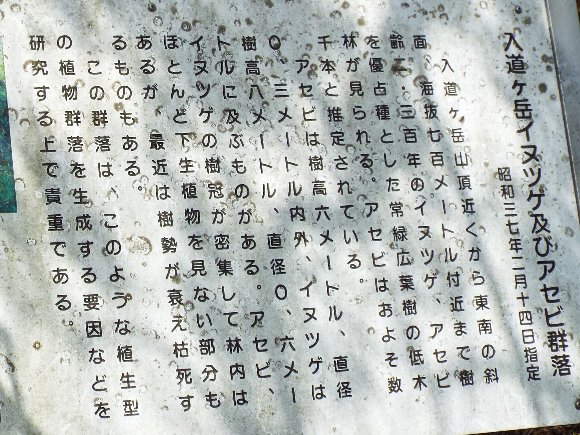 入道ヶ岳イヌツゲ及びアセビ群落
昭和三七年二月十四日指定
入道ヶ岳山頂近くから東南の斜
面、海抜七百メートル付近まで樹
齢二・三百年のイヌツゲ、アセビ
を優占種とした常緑広葉樹の低木
林が見られる。アセビはおよそ数
千本と推定されている。
アセビは樹高六メートル、直径
〇、三メートル内外、イヌツゲは
樹高八メートル、直径〇、六メー
トルに及ぶものがある。アセビ、
イヌツゲの樹冠が密集して林内は
ほとんど下生植物を見ない部分も
あるが、最近は樹勢が衰え枯死す
るものもある。
この群落は、このような植生型
の植物群落を生成する要因などを
研究する上で貴重である。